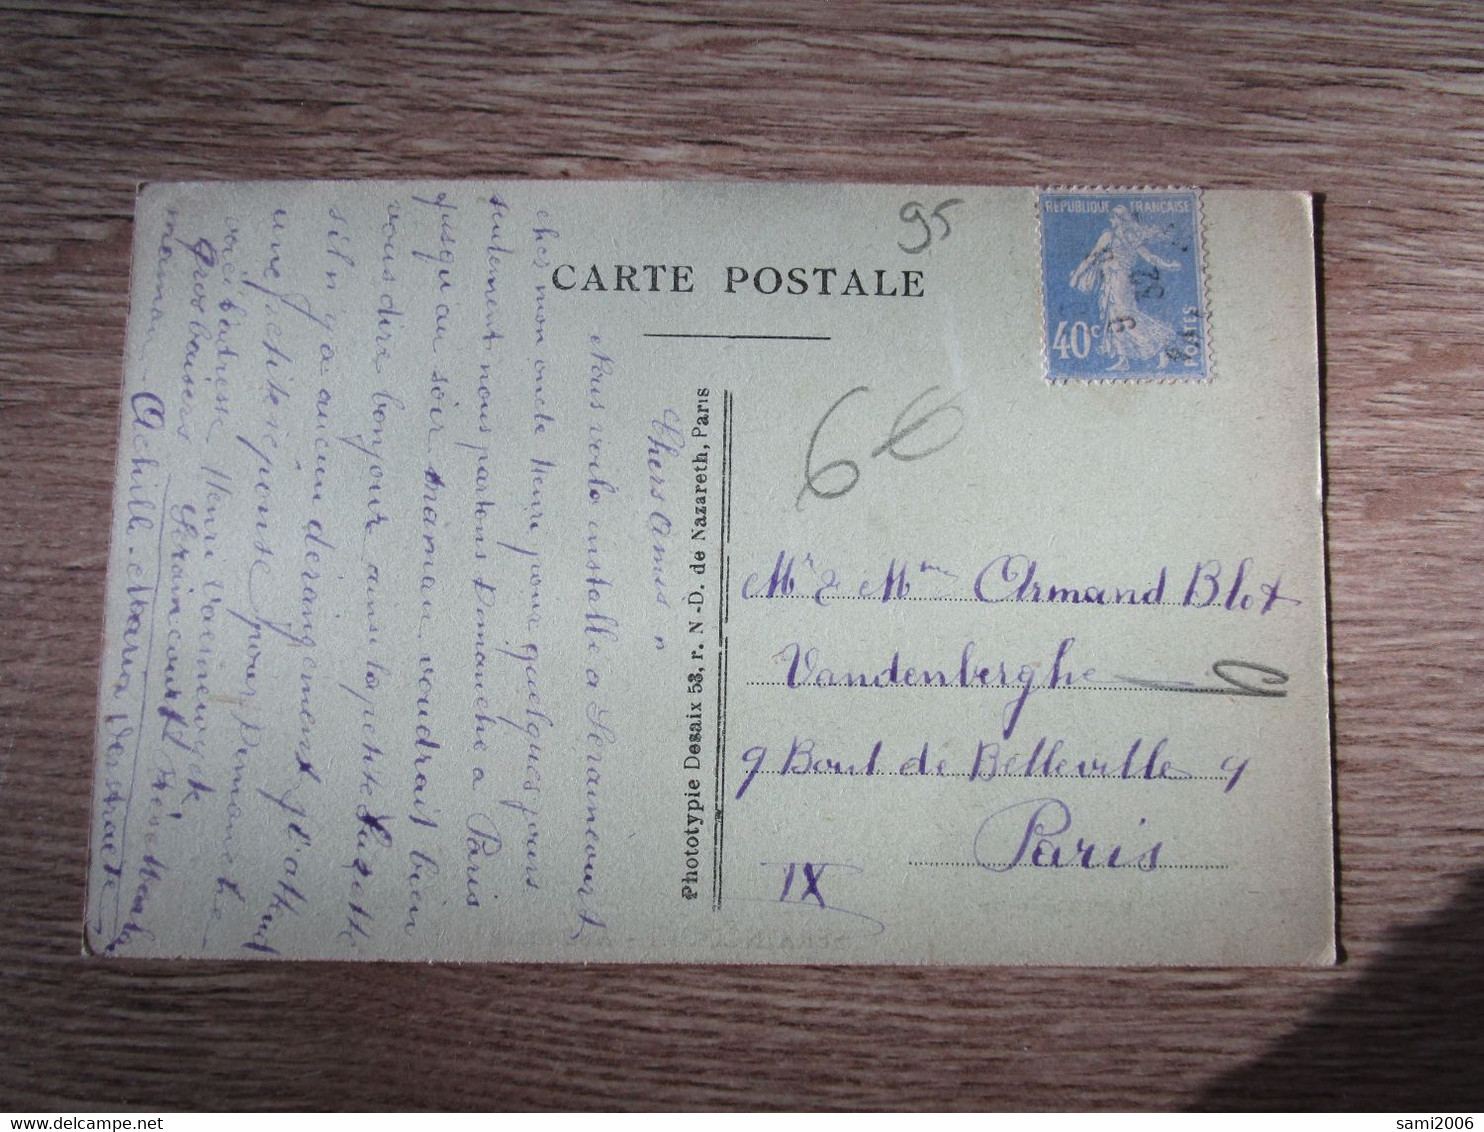 95
CARTE POSTALE
REPUBLIQUE FRANÇAISE
40c
POSTES
66
Chers Amis
Nous voila installé a Seraincourt
chez mon oncle Henri pour quelques jours
seulement nous partons Dimanche a Paris
jusqu'au soir maman voudrait bien
vous dire bonjour ainsi la petite Suzette
s'il n'y a aucun dérangement j'attend
une petite réponse pour Dimanche
voici l'adresse Henri
Seraincourt
Gros baisers
maman Achille. Maria
Phototypie Desaix 53, r. N.-D. de Nazareth, Paris
Mr & Mme Armand Blot
Vandenberghe
9 Boul de Belleville 9
Paris
IX
sami2006